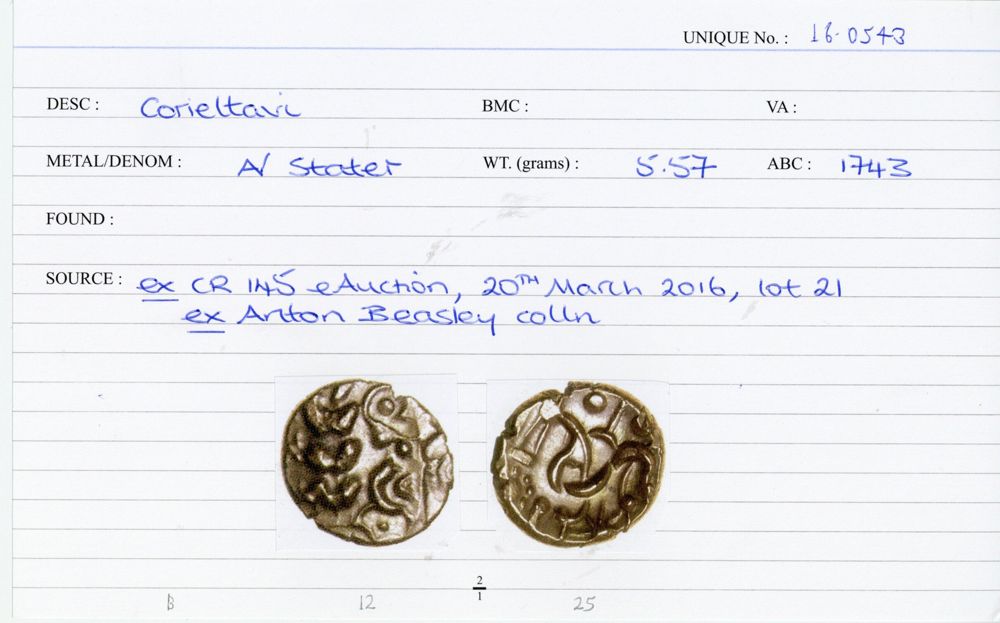 UNIQUE No. : 16.0543
DESC : Corieltavi BMC : VA :
METAL/DENOM : A/ Stater WT. (grams) : 5.57 ABC : 1743
FOUND :
SOURCE : ex CR 145 eAuction, 20TH March 2016, lot 21
ex Anton Beasley colln
2
1
B 12 25